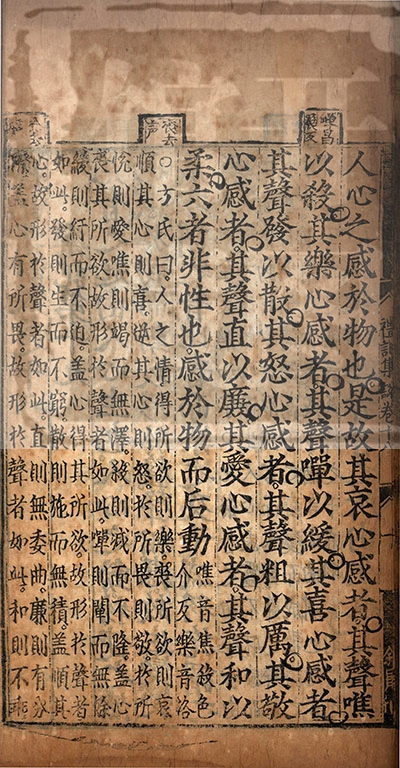 禮記集說卷
嘽昌
展反
人心之感於物也是故其哀心感者其聲噍
以殺其樂心感者其聲嘽以緩其喜心感者
其聲發以散其怒心感者其聲粗以厲其敬
心感者其聲直以廉其愛心感者其聲和以
柔六者非性也感於物而后動
噍音焦殺色
介反樂音洛
喪去
声
○方氏曰人之情得所欲則樂喪所欲則哀
順其心則喜逆其心則怒於所畏則敬於所
悅則愛噍則竭而無澤殺則減而不隆蓋心
喪其所欲故形於聲者如此嘽則闡而無餘
緩則紓而不迫蓋心得其所欲故形於聲者
如此發則生而不窮散則施而無積蓋順其
心故形於聲者如此直則無委曲廉則有分
際蓋心有所畏故形於聲者如此和則不乖